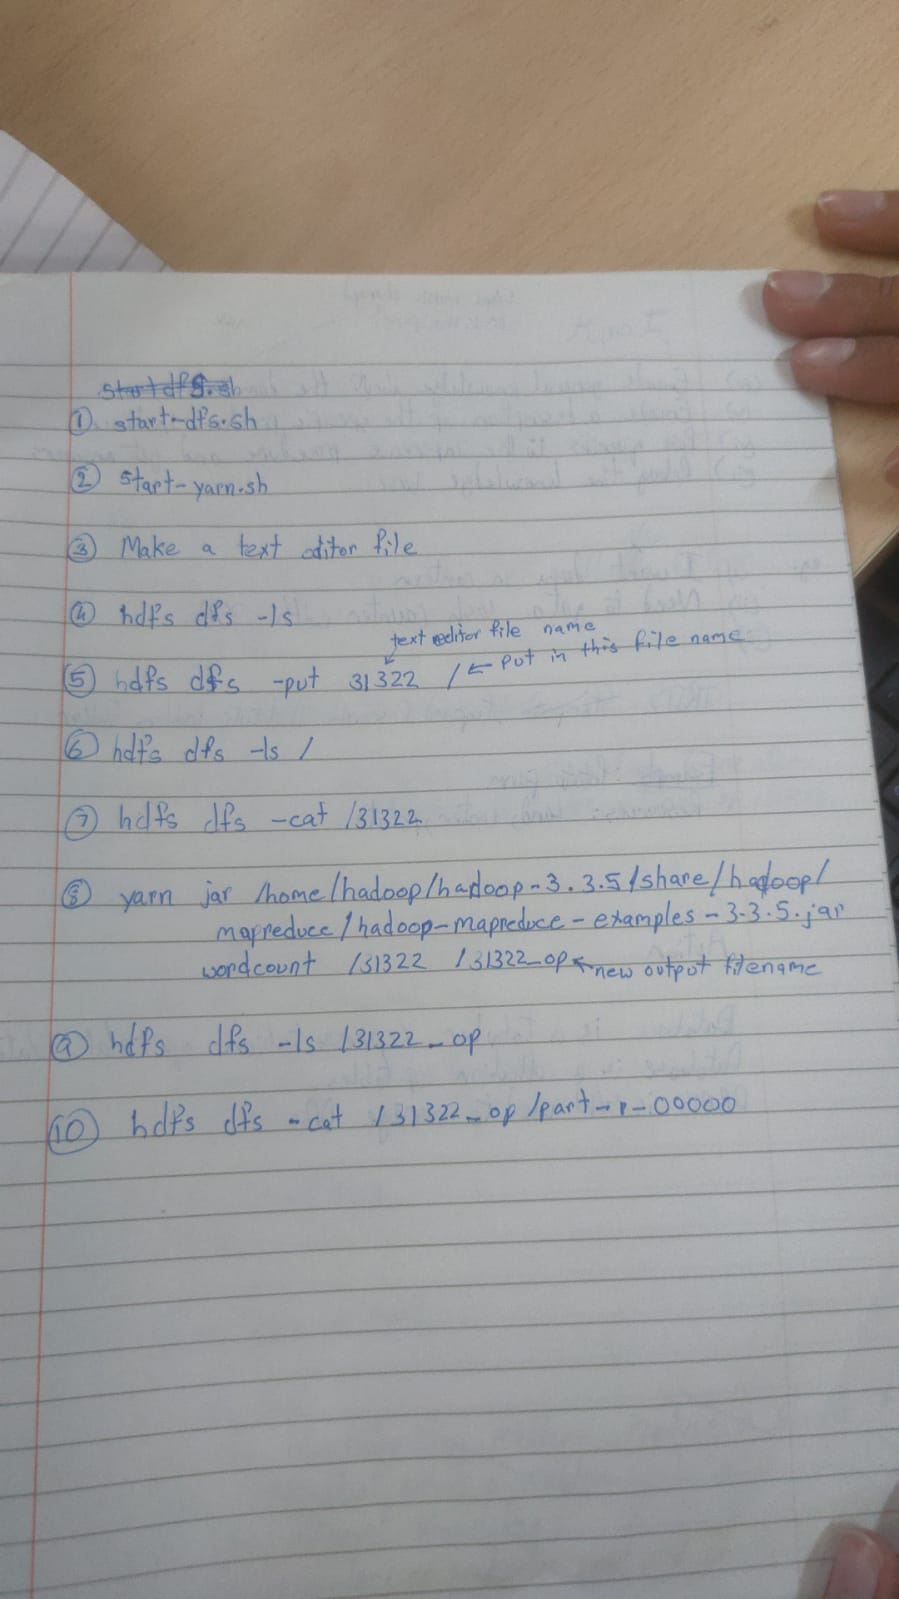 ① start-dfs.sh
② start-yarn.sh
③ Make a text editor file
④ hdfs dfs -ls
text editor file name
⑤ hdfs dfs -put 31322 / ← put in this file name
⑥ hdfs dfs -ls /
⑦ hdfs dfs -cat /31322
⑧ yarn jar /home/hadoop/hadoop-3.3.5/share/hadoop/
mapreduce/hadoop-mapreduce-examples-3.3.5.jar
wordcount /31322 /31322_op ← new output filename
⑨ hdfs dfs -ls /31322_op
⑩ hdfs dfs -cat /31322_op/part-r-00000